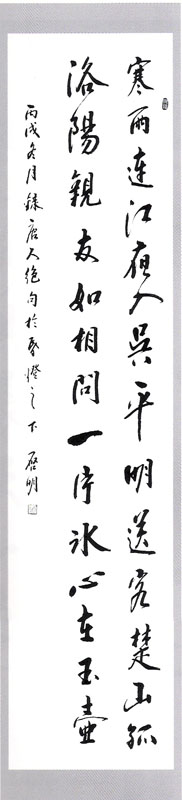 寒雨連江夜入吳平明送客楚山孤
洛陽親友如相問一片冰心在玉壺
丙戌冬月錄唐人絕句於燈之下 啓明